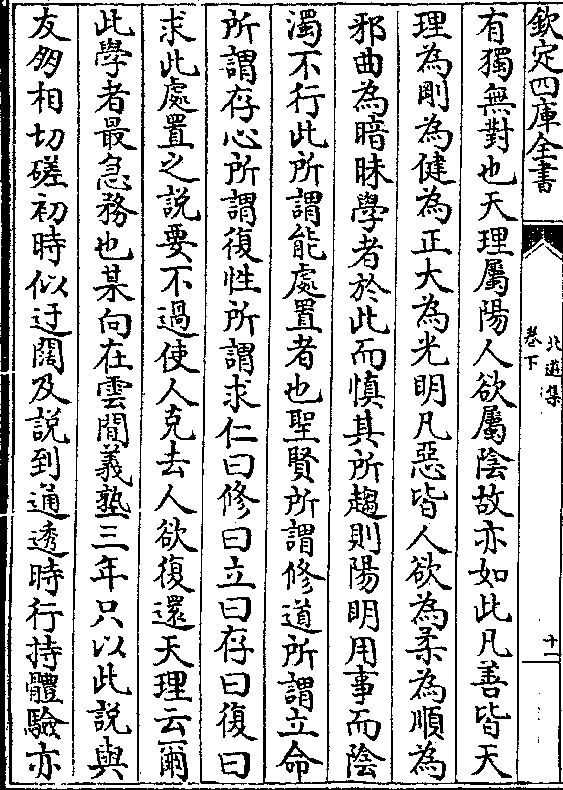 欽定四庫全書
北遊集
卷下
十一
有獨無對也天理屬陽人欲屬陰故亦如此凡善皆天
理為剛為健為正大為光明凡惡皆人欲為柔為順為
邪曲為暗昧學者於此而慎其所趨則陽明用事而陰
濁不行此所謂能處置者也聖賢所謂修道所謂立命
所謂存心所謂復性所謂求仁曰修曰立曰存曰復曰
求此處置之說要不過使人克去人欲復還天理云爾
此學者最急務也某向在雲間義塾三年只以此說與
友朋相切磋初時似迂闊及說到通透時行持體驗亦